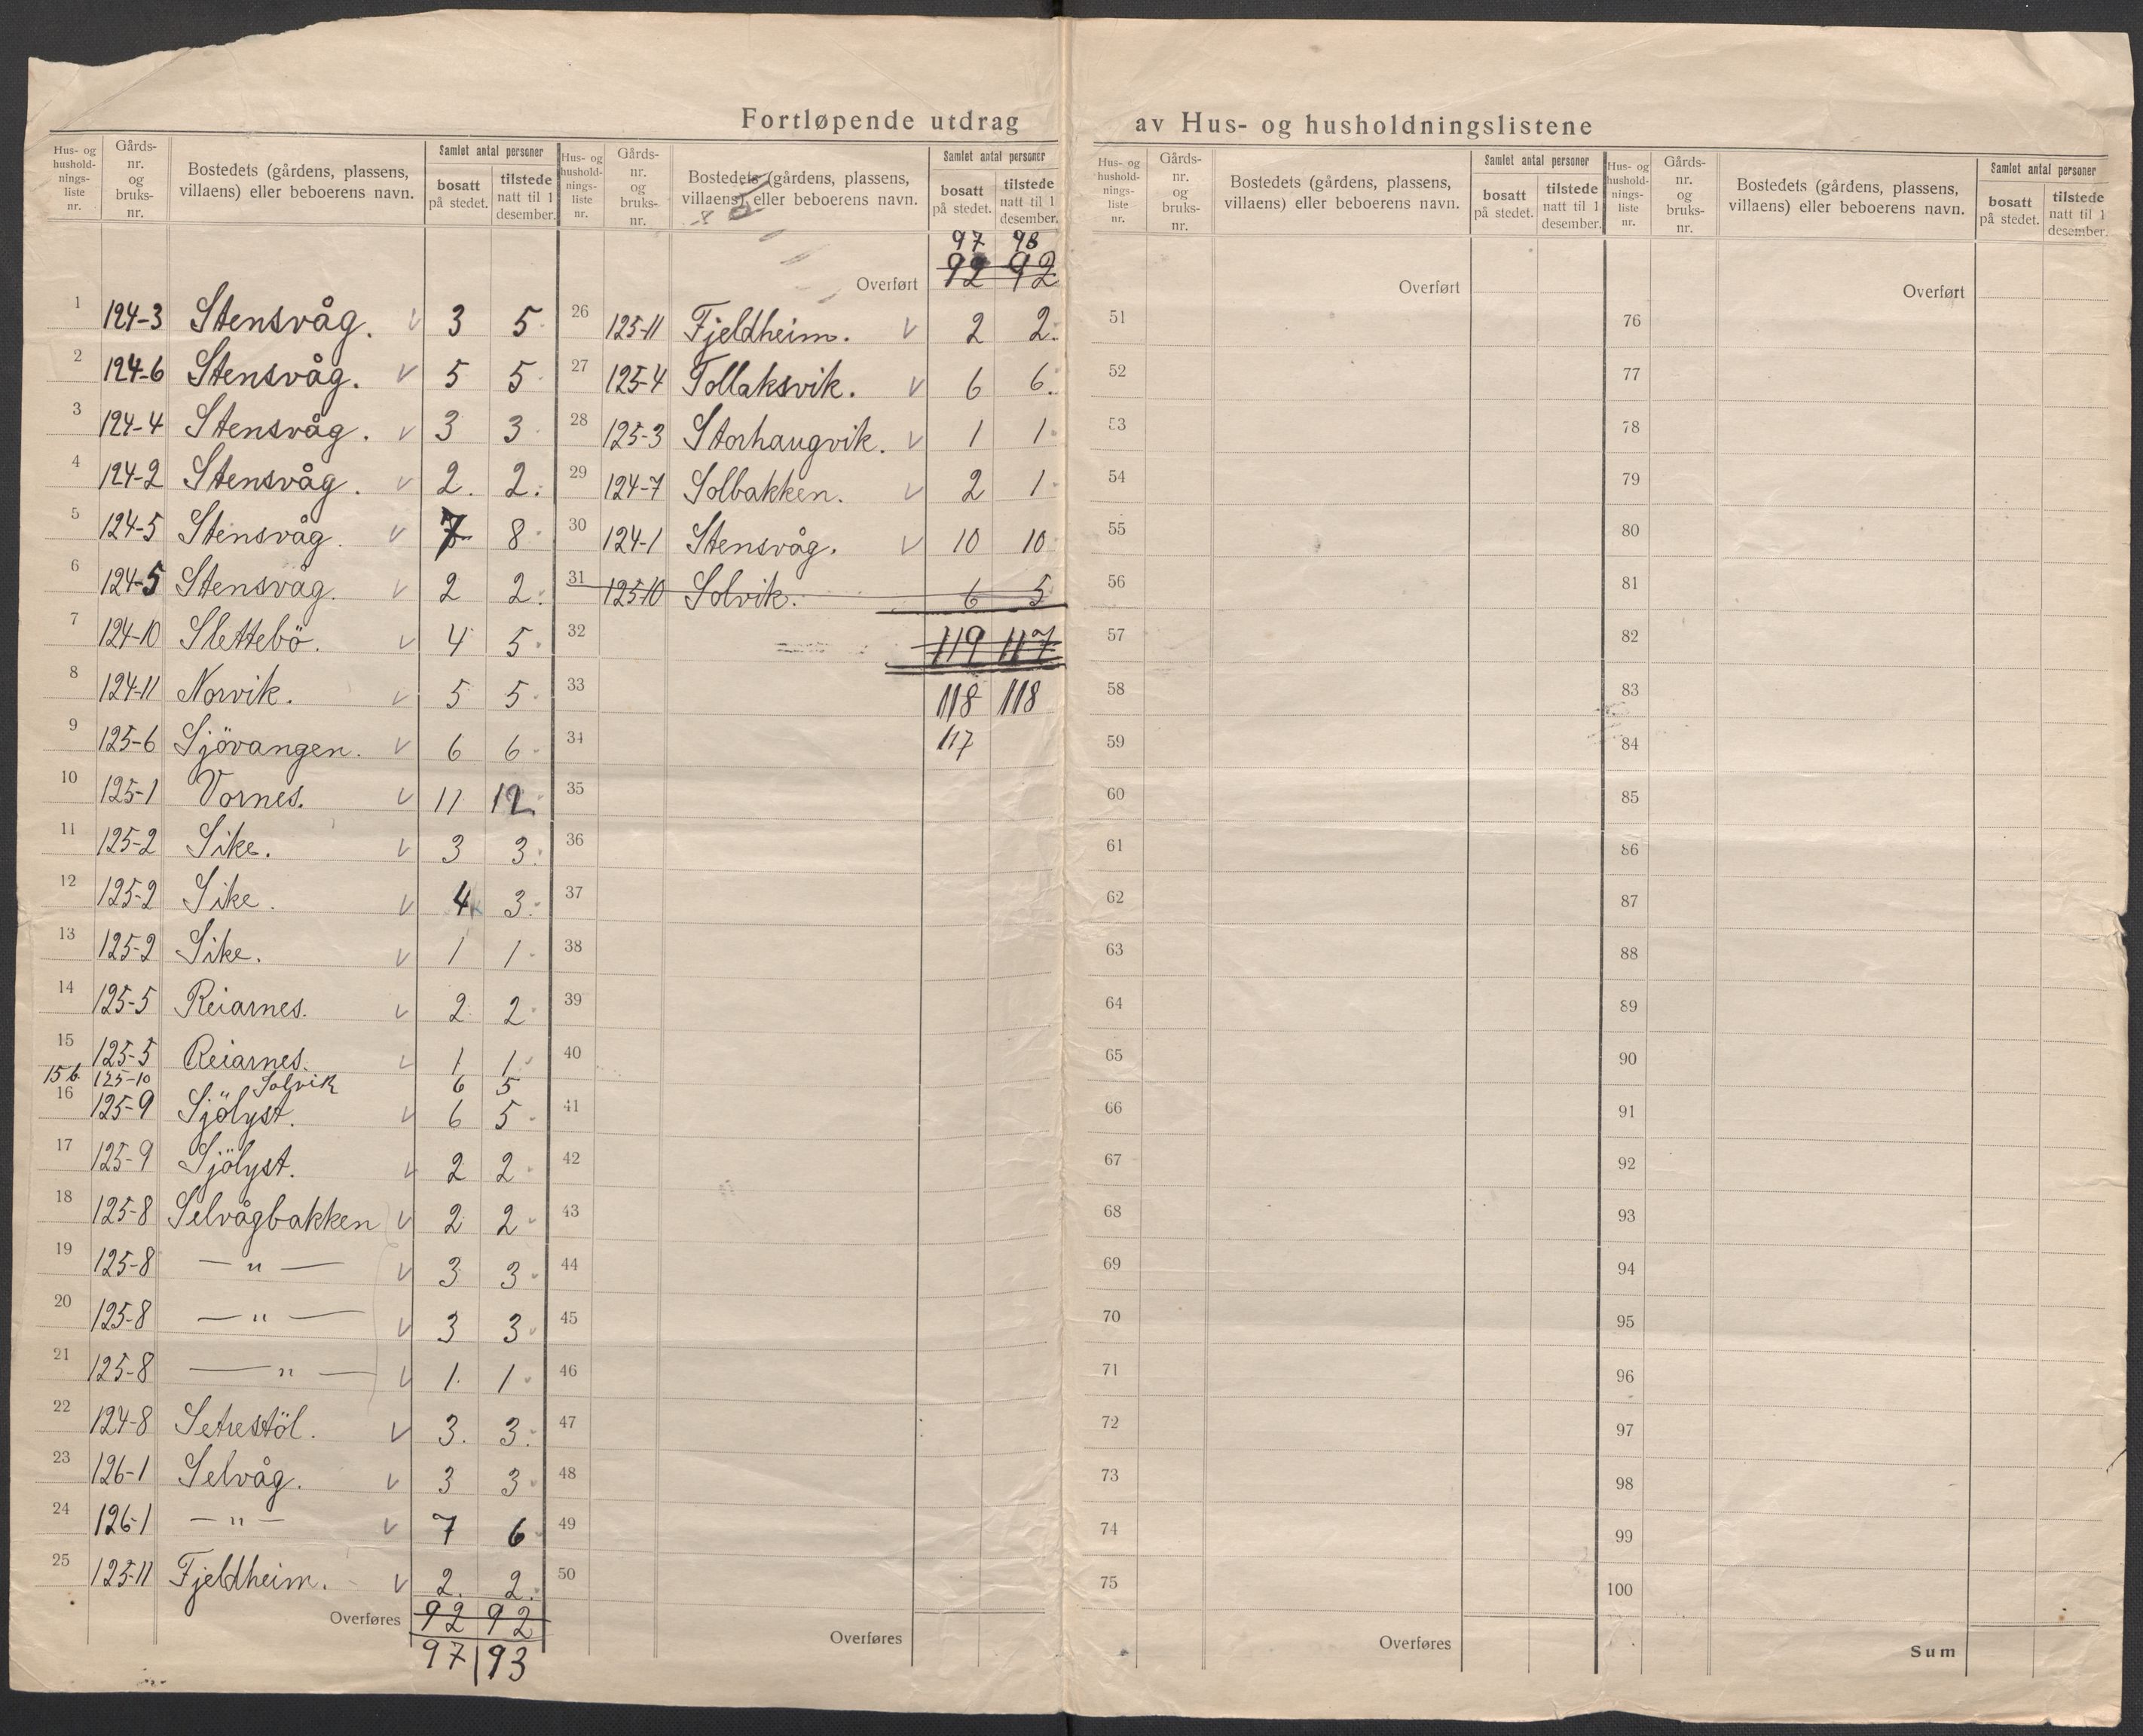 Fortløpende utdrag av Hus- og husholdningslistene
Hus- og hushold- nings- liste nr. | Gårds- nr. og bruks- nr. | Bostedets (gårdens, plassens, villaens) eller beboerens navn. | Samlet antal personer | bosatt på stedet. | tilstede natt til 1 desember.
1 124-3 Stensvåg. v 3 5
2 124-6 Stensvåg. v 5 5
3 124-4 Stensvåg. v 3 3
4 124-2 Stensvåg. v 2. 2.
5 124-5 Stensvåg. v 7 8
6 124-5 Stensvåg. v 2 2.
7 124-10 Slettebö. v 4 5
8 124-11 Norvik. v 5 5
9 125-6 Sjövangen. v 6 6
10 125-1 Vornes. v 11 12
11 125-2 Sike. v 3 3
12 125-2 Sike. v 4 3
13 125-2 Sike. v 1 1
14 125-5 Reiarnes. v 2 2
15 125-5 Reiarnes. v 1 1
15b. 125-10 Solvik 6 5
16 125-9 Sjölyst. v 6 5
17 125-9 Sjölyst. v 2 2
18 125-8 Selvågbakken v 2 2
19 125-8 — " — v 3 3
20 125-8 — " — v 3 3
21 125-8 — " — v 1. 1
22 124-8 Setrestöl. v 3. 3.
23 126-1 Selvåg. v 3 3
24 126-1 — " — v 7 6
25 125-11 Fjeldheim. v 2. 2.
Overføres 92 92
97 93
Hus- og hushold- nings- liste nr. | Gårds- nr. og bruks- nr. | Bostedets (gårdens, plassens, villaens) eller beboerens navn. | Samlet antal personer | bosatt på stedet. | tilstede natt til 1 desember.
97 98
Overført 92 92
26 125-11 Fjeldheim. v 2 2.
27 125-4 Tollaksvik. v 6 6.
28 125-3 Storhaugvik. v 1 1
29 124-7 Solbakken. v 2 1
30 124-1 Stensvåg. v 10 10
31 125-10 Solvik. 6 5
32 119 117
33 118 118
34 117
35
36
37
38
39
40
41
42
43
44
45
46
47
48
49
50
Overføres
Hus- og hushold- nings- liste nr. | Gårds- nr. og bruks- nr. | Bostedets (gårdens, plassens, villaens) eller beboerens navn. | Samlet antal personer | bosatt på stedet. | tilstede natt til 1 desember.
Overført
51
52
53
54
55
56
57
58
59
60
61
62
63
64
65
66
67
68
69
70
71
72
73
74
75
Overføres
Hus- og hushold- nings- liste nr. | Gårds- nr. og bruks- nr. | Bostedets (gårdens, plassens, villaens) eller beboerens navn. | Samlet antal personer | bosatt på stedet. | tilstede natt til 1 desember.
Overført
76
77
78
79
80
81
82
83
84
85
86
87
88
89
90
91
92
93
94
95
96
97
98
99
100
Sum